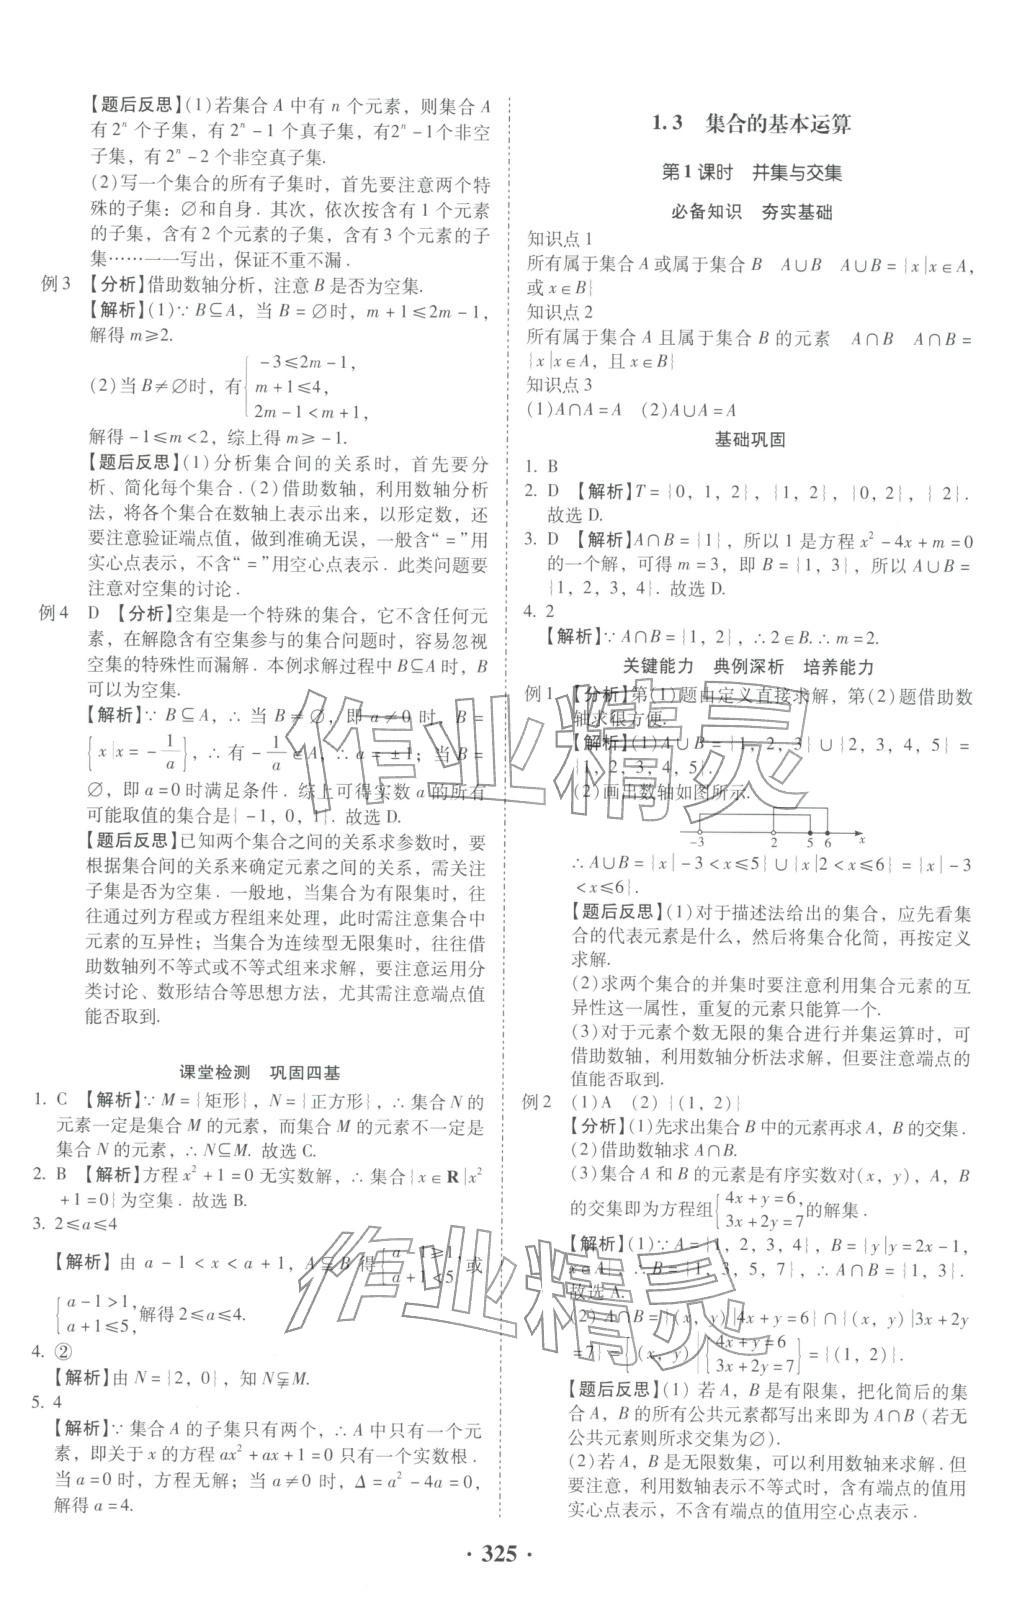 【题后反思】(1)若集合 A 中有 n 个元素，则集合 A
有 2ⁿ 个子集，有 2ⁿ－1 个真子集，有 2ⁿ－1 个非空
子集，有 2ⁿ－2 个非空真子集.
(2)写一个集合的所有子集时，首先要注意两个特
殊的子集：∅和自身．其次，依次按含有 1 个元素
的子集，含有 2 个元素的子集，含有 3 个元素的子
集……一一写出，保证不重不漏．
例 3 【分析】借助数轴分析，注意 B 是否为空集.
【解析】(1)∵ B⊆A，当 B＝∅时，m＋1≤2m－1，
解得 m≥2.
(2)当 B≠∅时，有{－3≤2m－1，
m＋1≤4，
2m－1＜m＋1，
解得－1≤m＜2，综上得 m≥－1.
【题后反思】(1)分析集合间的关系时，首先要分
析、简化每个集合．(2)借助数轴，利用数轴分析
法，将各个集合在数轴上表示出来，以形定数，还
要注意验证端点值，做到准确无误，一般含“＝”用
实心点表示，不含“＝”用空心点表示．此类问题要
注意对空集的讨论．
例 4 D 【分析】空集是一个特殊的集合，它不含任何元
素，在解隐含有空集参与的集合问题时，容易忽视
空集的特殊性而漏解．本例求解过程中 B⊆A 时，B
可以为空集.
【解析】∵ B⊆A，∴ 当 B≠∅，即 a≠0 时，B＝
{x|x＝－1/a}，∴ 有－1/a∈A，∴ a＝±1；当 B＝
∅，即 a＝0 时满足条件．综上可得实数 a 的所有
可能取值的集合是{－1，0，1}．故选 D.
【题后反思】已知两个集合之间的关系求参数时，要
根据集合间的关系来确定元素之间的关系，需关注
子集是否为空集．一般地，当集合为有限集时，往
往通过列方程或方程组来处理，此时需注意集合中
元素的互异性；当集合为连续型无限集时，往往借
助数轴列不等式或不等式组来求解，要注意运用分
类讨论、数形结合等思想方法，尤其需注意端点值
能否取到.
课堂检测　巩固四基
1. C 【解析】∵ M＝{矩形}，N＝{正方形}，∴ 集合 N 的
元素一定是集合 M 的元素，而集合 M 的元素不一定是
集合 N 的元素，∴ N⊆M. 故选 C.
2. B 【解析】方程 x²＋1＝0 无实数解，∴ 集合{x∈R|x²
＋1＝0}为空集．故选 B.
3. 2≤a≤4
【解析】由 a－1＜x＜a＋1，A⫋B 得{a－1≥1，
a＋1＜5 或
{a－1＞1，
a＋1≤5，解得 2≤a≤4.
4. ②
【解析】由 N＝{2，0}，知 N⫋M.
5. 4
【解析】∵ 集合 A 的子集只有两个，∴ A 中只有一个元
素，即关于 x 的方程 ax²＋ax＋1＝0 只有一个实数根．
当 a＝0 时，方程无解；当 a≠0 时，Δ＝a²－4a＝0，
解得 a＝4.
1.3　集合的基本运算
第 1 课时　并集与交集
必备知识　夯实基础
知识点 1
所有属于集合 A 或属于集合 B　A∪B　A∪B＝{x|x∈A，
或 x∈B}
知识点 2
所有属于集合 A 且属于集合 B 的元素　A∩B　A∩B＝
{x|x∈A，且 x∈B}
知识点 3
(1)A∩A＝A　(2)A∪A＝A
基础巩固
1. B
2. D 【解析】T＝{0，1，2}，{1，2}，{0，2}，{2}．
故选 D.
3. D 【解析】A∩B＝{1}，所以 1 是方程 x²－4x＋m＝0
的一个解，可得 m＝3，即 B＝{1，3}，所以 A∪B＝
{1，2，3}．故选 D.
4. 2
【解析】∵ A∩B＝{1，2}，∴ 2∈B. ∴ m＝2.
关键能力　典例深析　培养能力
例 1 【分析】第(1)题由定义直接求解，第(2)题借助数
轴求很方便.
【解析】(1)A∪B＝{1，2，3}∪{2，3，4，5}＝
{1，2，3，4，5}．
(2)画出数轴如图所示.
－3 2 5 6 x
∴ A∪B＝{x|－3＜x≤5}∪{x|2＜x≤6}＝{x|－3
＜x≤6}．
【题后反思】(1)对于描述法给出的集合，应先看集
合的代表元素是什么，然后将集合化简，再按定义
求解.
(2)求两个集合的并集时要注意利用集合元素的互
异性这一属性，重复的元素只能算一个.
(3)对于元素个数无限的集合进行并集运算时，可
借助数轴，利用数轴分析法求解，但要注意端点的
值能否取到.
例 2 (1)A　(2){(1，2)}
【分析】(1)先求出集合 B 中的元素再求 A，B 的交集．
(2)借助数轴求 A∩B.
(3)集合 A 和 B 的元素是有序实数对(x，y)，A，B
的交集即为方程组{4x＋y＝6，
3x＋2y＝7 的解集．
【解析】(1)∵ A＝{1，2，3，4}，B＝{y|y＝2x－1，
x∈A}，∴ B＝{1，3，5，7}，∴ A∩B＝{1，3}．
故选 A.
(2) A∩B＝{(x，y)|4x＋y＝6}∩{(x，y)|3x＋2y
＝7}＝{(x，y)|{4x＋y＝6，
3x＋2y＝7}＝{(1，2)}．
【题后反思】(1) 若 A，B 是有限集，把化简后的集
合 A，B 的所有公共元素都写出来即为 A∩B（若无
公共元素则所求交集为∅）.
(2)若 A，B 是无限数集，可以利用数轴来求解．但
要注意，利用数轴表示不等式时，含有端点的值用
实心点表示，不含有端点的值用空心点表示．
· 325 ·
作业精灵
作业精灵